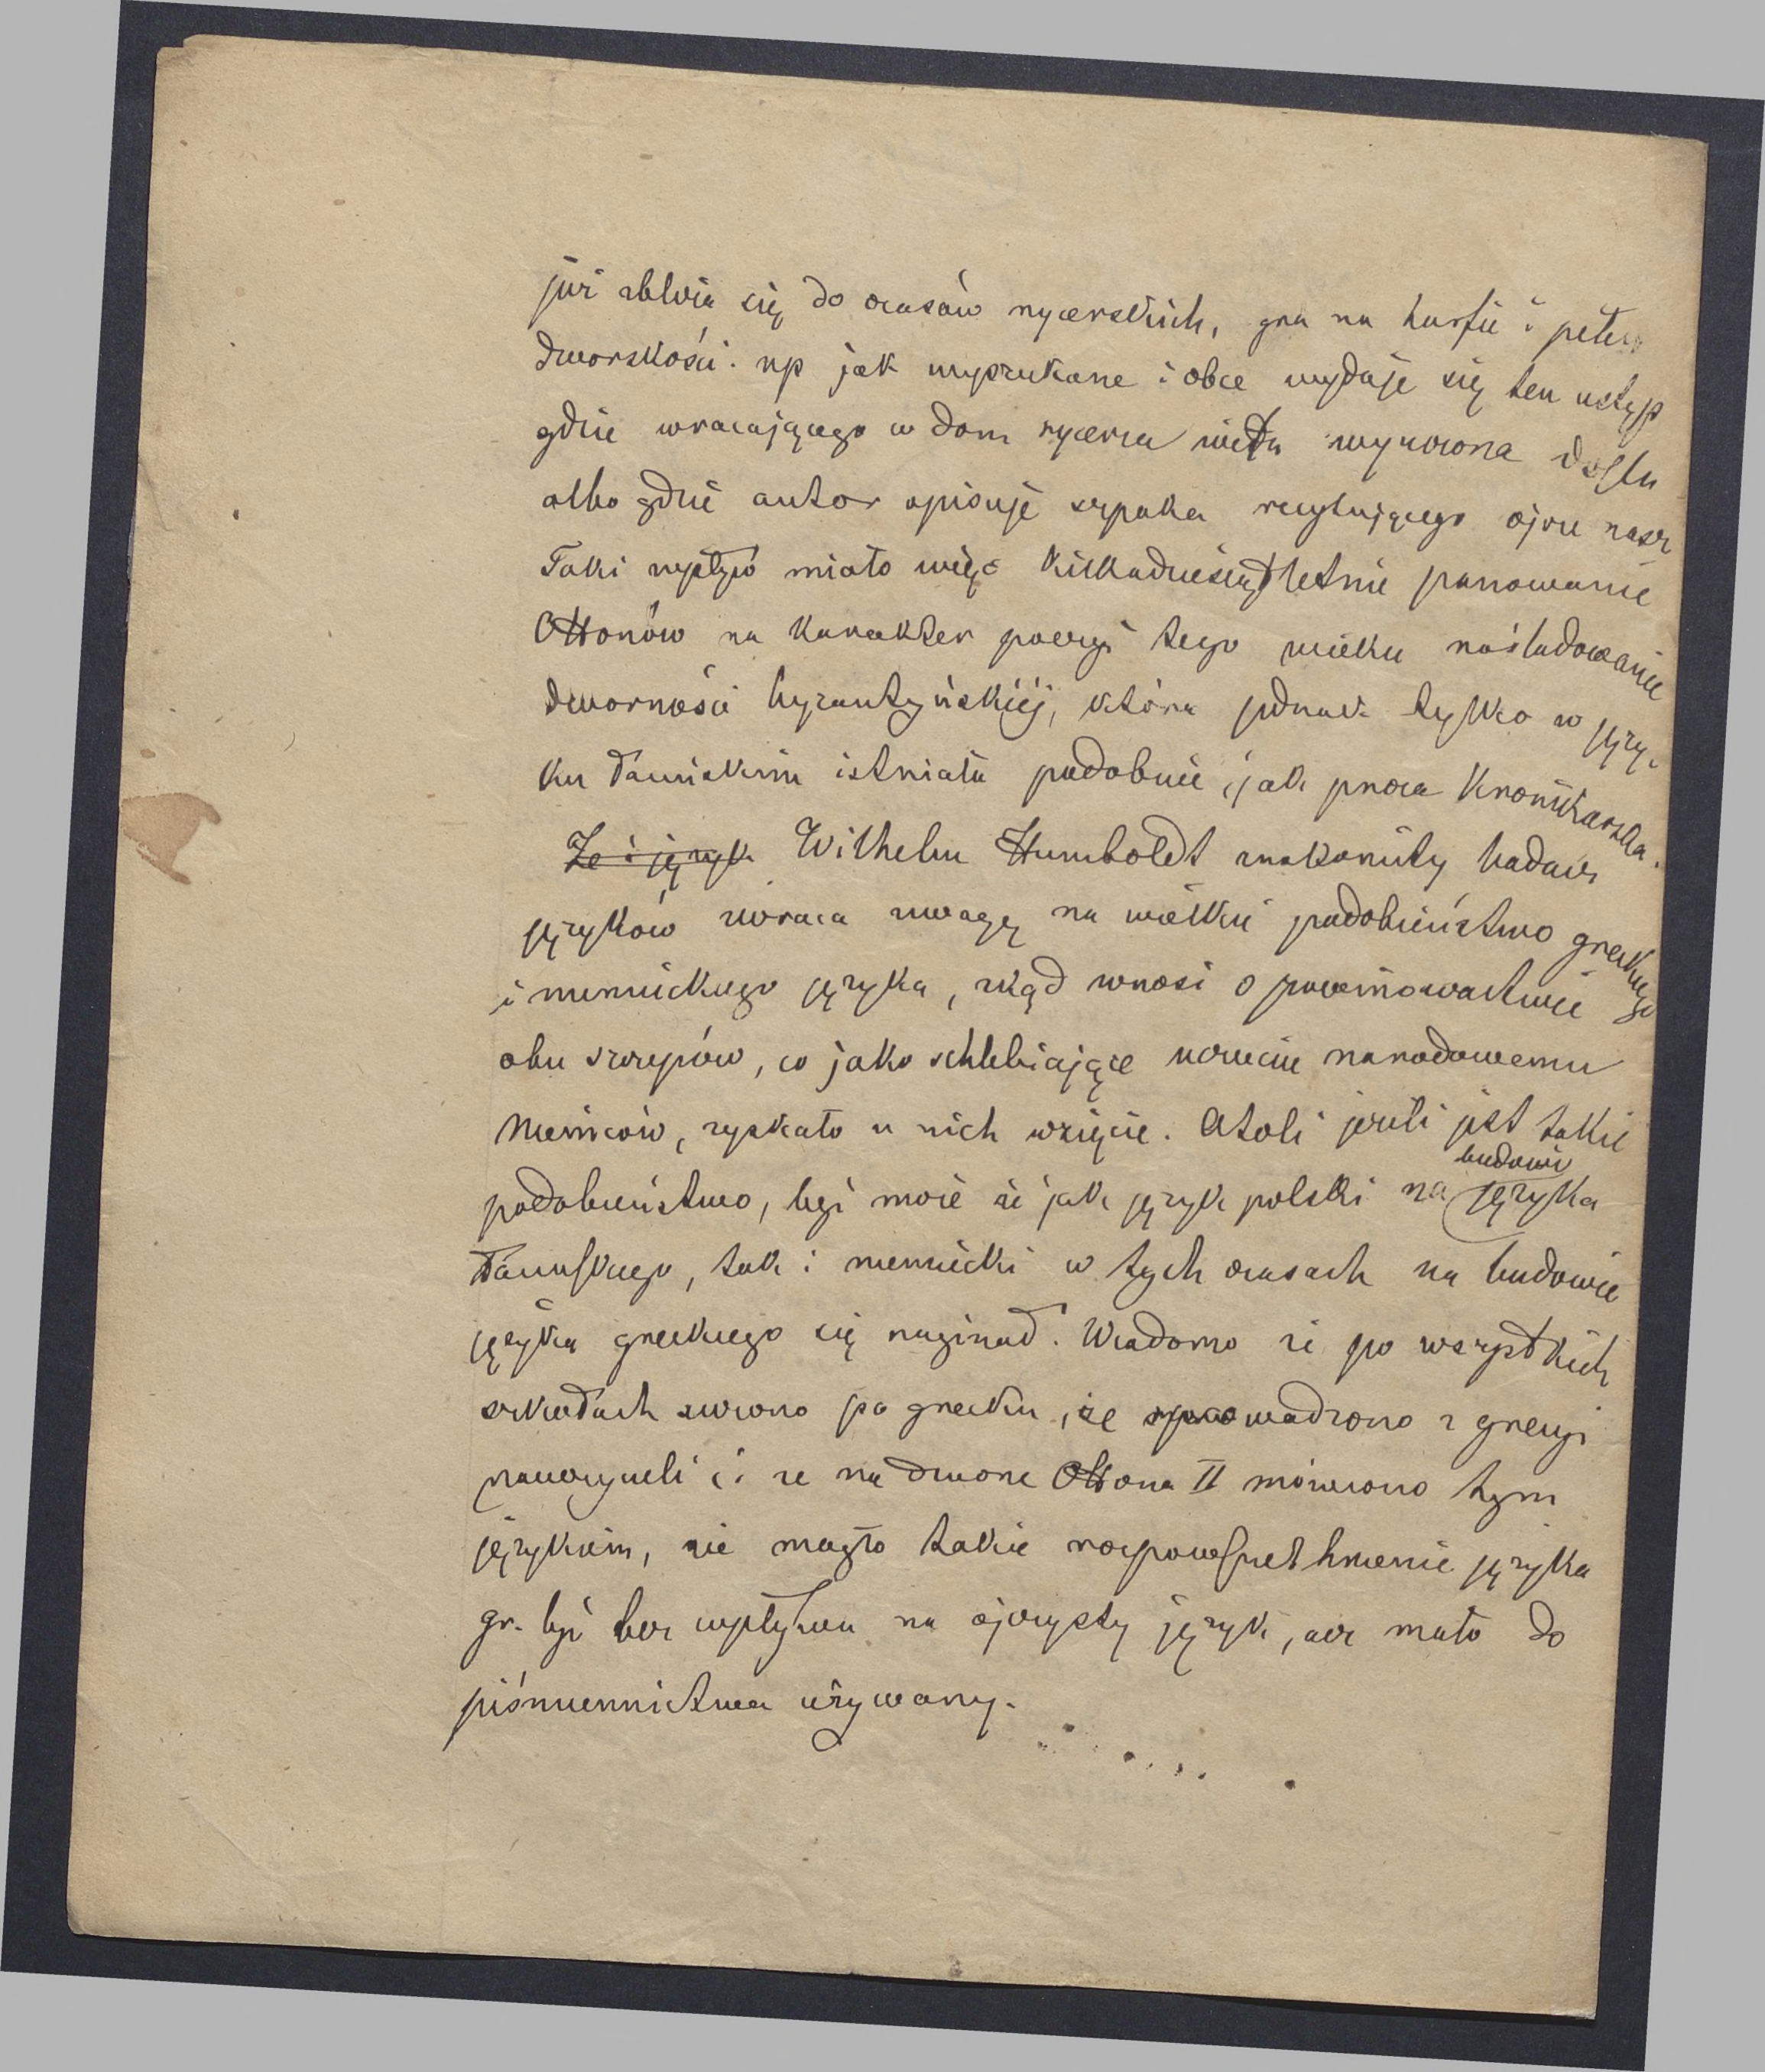 już zbliża się do czasów rycerskich, gra na harfie i pełen
dworskości. np jak wyszukane i obce wydaje się ten ustęp
gdzie wracającego w dom rycerza wita wyuczona
albo gdzie autor opisuje szpaka recytującego ojcze nasz
Taki wpływ miało więc kilkadziesiątletnie panowanie
Ottonów na karakter poezyi tego wieku naśladowanie
dworności byzantyńskiéj, która jednak tylko w języ-
ku łacińskim istniała podobnie jak proza kronikarska.
Że i język Wilhelm Humboldt znakomity badacz
języków zwraca uwagę na wielkie podobieństwo greckiego
i niemieckiego języka, zkąd wnosi o powinowactwie
obu szczepów, co jako schlebiające uczuciu narodowemu
Niemców, zyskało u nich wzięcie. Atoli jeżeli jest takie
podobieństwo, być może że jak język polski na budowie języka
łacińskiego, tak i niemiecki w tych czasach na budowie
języka greckiego się naginał. Wiadomo że po wszystkich
szkołach uczono po grecku, że sprowadzono z grecyi
nauczycieli i że na dworze Ottona II mówiono tym
językiem, nie mogło takie rozpowszechnienie języka
gr. być bez wpływu na ojczysty język, acz mało do
piśmiennictwa używany.